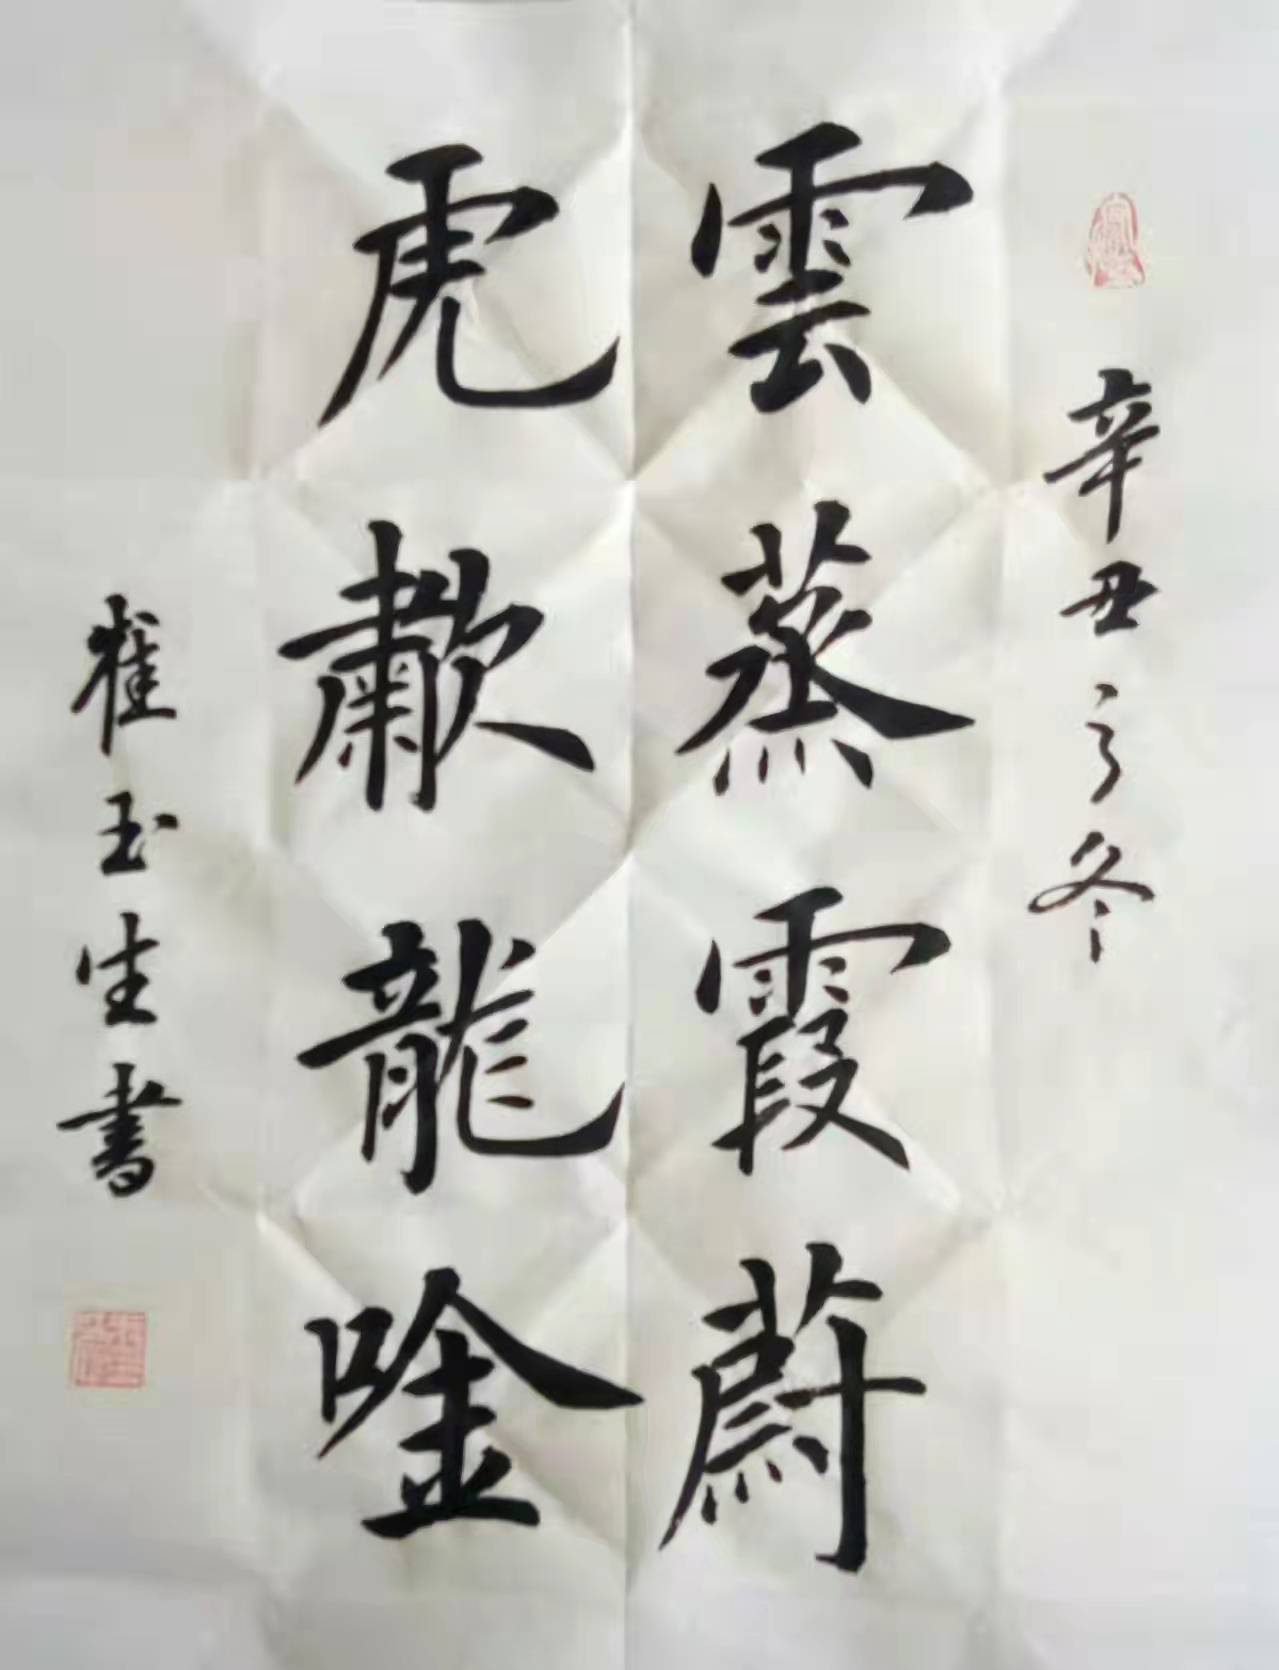 辛丑之冬
雲蒸霞蔚
虎歗龍唫
崔玉生書